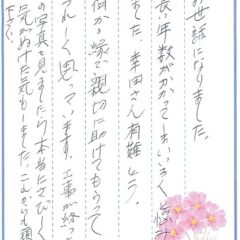 お世話になりました。
長い年数がかかっていろいろ悩み
ました。幸田さん有難う。
何かの縁で親切に助けてもらって
うれしく思っています。工事が終っ
の写真見ましたら本当にさびしく
気がぬけた気もしました。これから